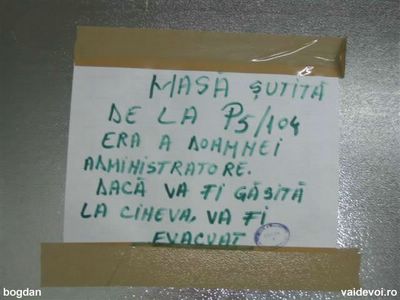 MASĂ ȘUTITĂ
DE LA P5/104
ERA A DOAMNEI
ADMINISTRATORE.
DACĂ VA FI GĂSITĂ
LA CINEVA, VA FI
EVACUAT
bogdan
vaidevoi.ro